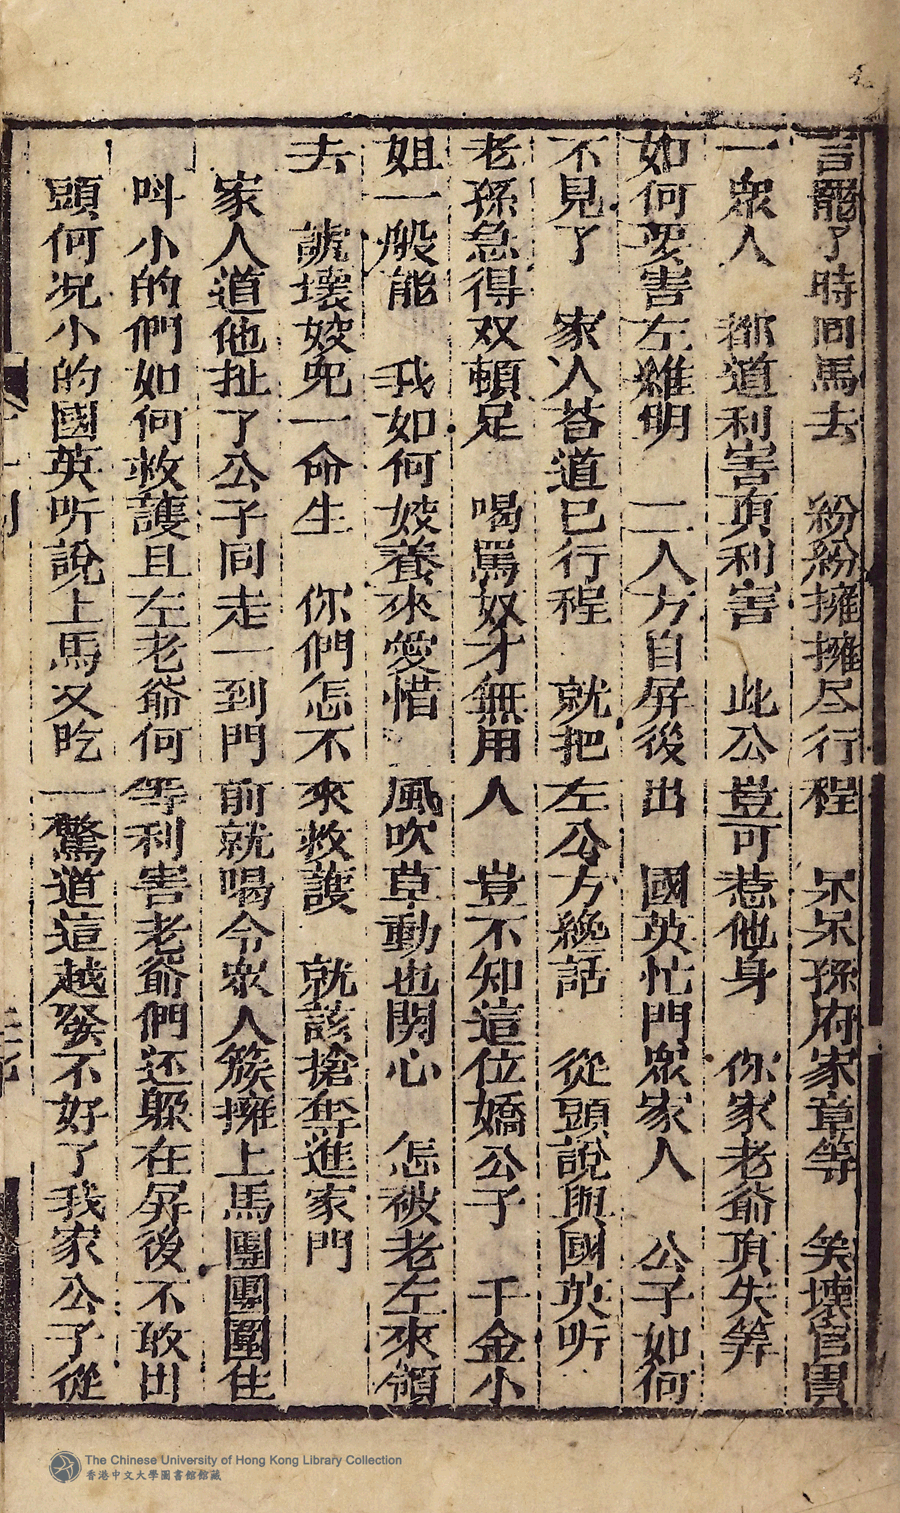 言罷了時同馬去　紛紛擁擁尽行程　呆呆孫府家章等　笑壞官胄
一衆人　都道利害真利害　此公豈可惹他身　你家老爺真失筭
如何要害左維明　二人方自屏後出　國英忙門衆家人　公子如何
不見了　家人荅道已行程　就把左公方纔話　從頭說與國英听
老孫急得双頓足　喝罵奴才無用人　豈不知這位嬌公子　千金小
姐一般能　我如何妏養來愛惜　風吹草動也関心　怎被老左來領
去　諕壞妏児一命生　你們怎不來救護　就該搶奪進家門
家人道他扯了公子同走一到門前就喝令衆人簇擁上馬團團圍住
呌小的們如何救護且左老爺何等利害老爺們还躲在屏後不敢出
頭何况小的國英听說上馬又吃一驚道這越發不好了我家公子從
The Chinese University of Hong Kong Library Collection
香港中文大學圖書館館藏